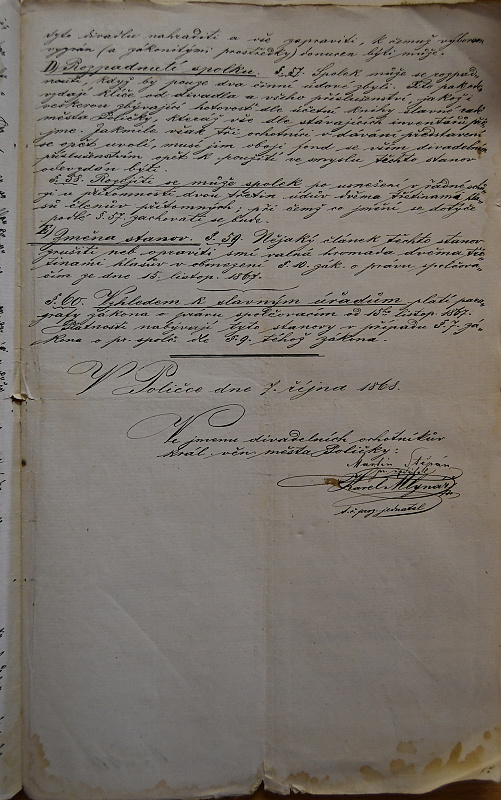 tyto divadlu nahraditi a vše zapraviti, k čemuž výborem
vyzván (a zákonitými prostředky) donucen býti může.
D) Rozpadnutí spolku. §.57. Spolek může se rozpad-
nouti, když by pouze dva činní údové zbyli. Tito pak ode-
vzdají klíče od divadla a všeho příslušenství, jakož i
veškerou zbývající hotovost dle účetní knihy slavné radě
města Poličky, kterážto vše dle stávajících inventářů při-
jme. Jakmile však tři ochotníci v dávání představení
se opět uvolí, musí jim obojí fond se vším divadelním
příslušenstvím opět k použití ve smyslu těchto stanov
odevzdán býti.
§.58. Rozejíti se může spolek po usnešení v řádné schů-
zi za přítomnosti dvou třetin údův dvěma třetinama hla-
sů členův přítomných, při čemž co jmění se dotýče
podlé §.57. zachovati se bude.
E) Změna stanov. §.59. Nějaký článek těchto stanov
zrušiti neb opraviti smí valná hromada dvěma tře-
tinami hlasův v obmezení §.10. zák. o právu spolčova-
cím ze dne 15. listop. 1867.
§.60. Vzhledem k slavným úřadům platí para-
grafy zákona o právu spolčovacím od 15ho listop. 1867.
Platnosti nabývají tyto stanovy v případu §.7. zá-
kona o pr. spolč. dle §.9. téhož zákona.
V Poličce dne 7. října 1868.
Ve jmenu divadelních ochotníkův
král. věn. města Poličky:
Martin Štěpán
Karel Mlynář
t.č. proz. jednatel